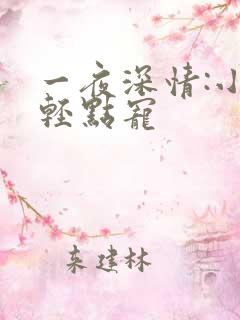 一夜深情:小
轻點寵
東建林